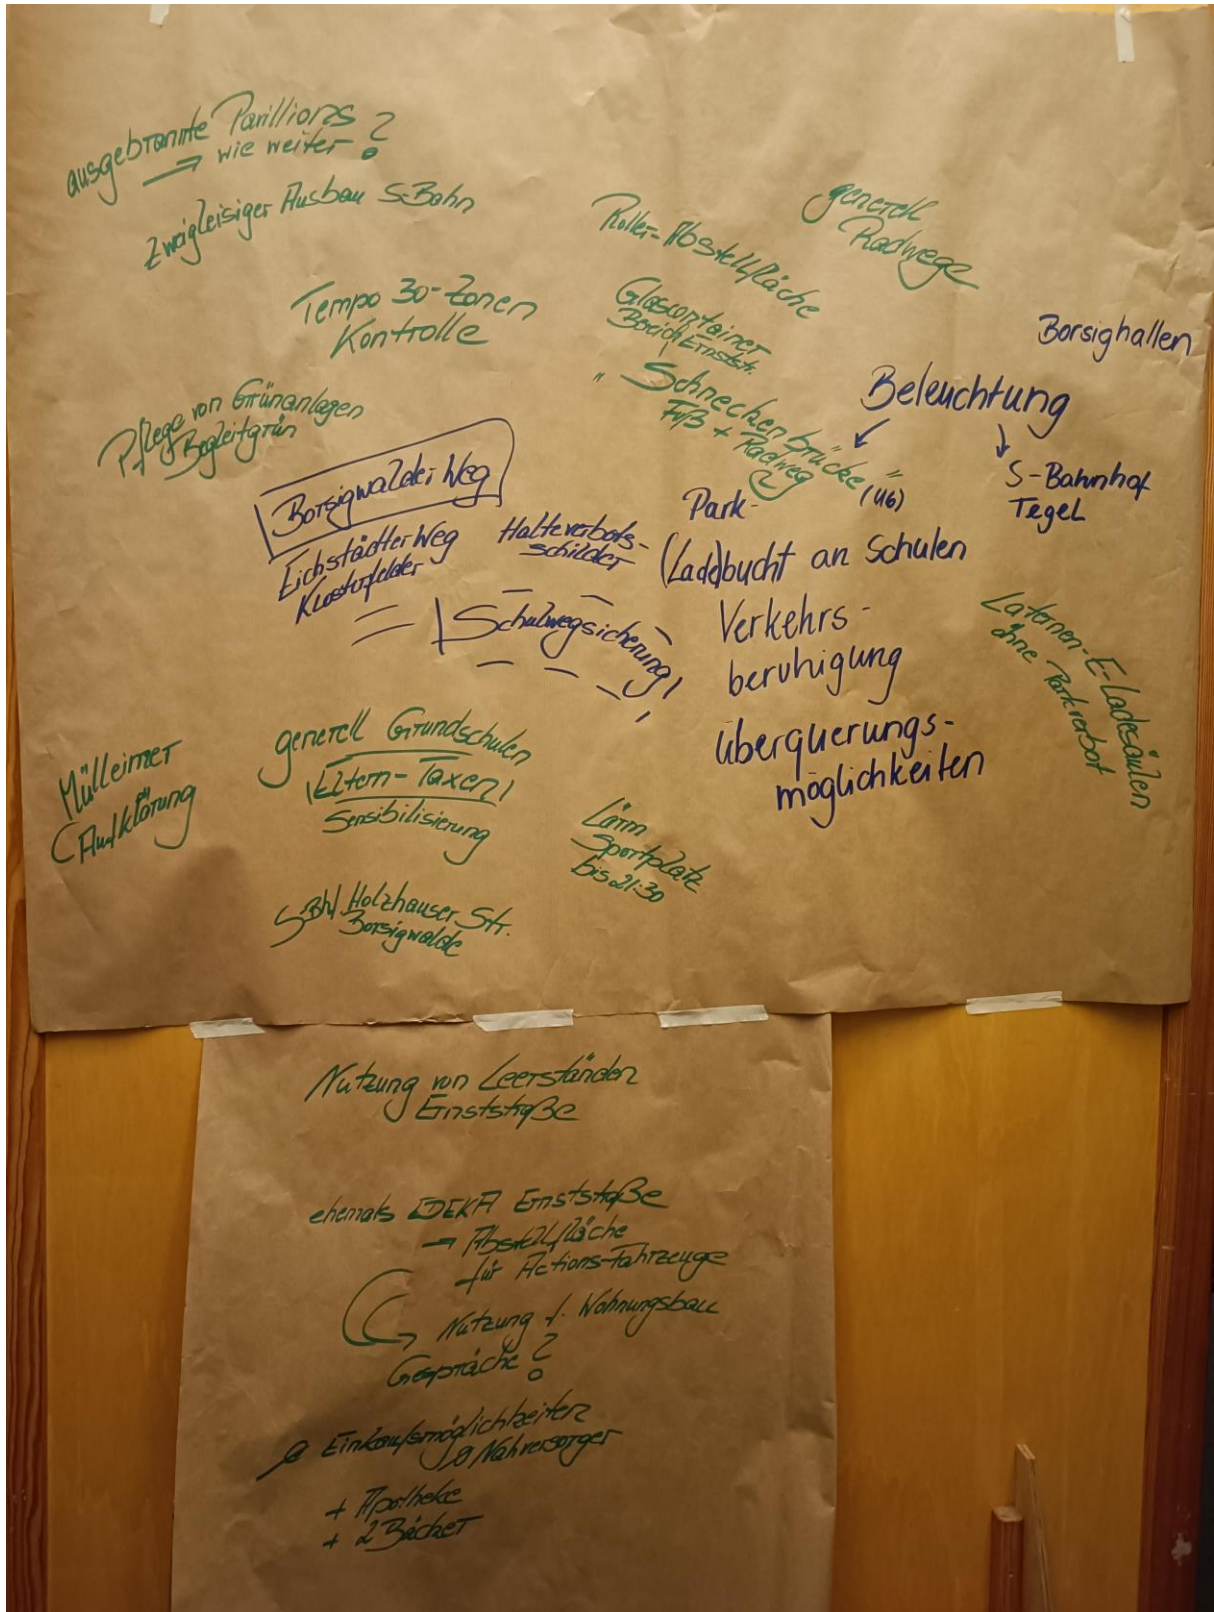 ausgebrannte Pavillions
→ wie weiter?
zweigleisiger Ausbau S-Bahn
Tempo 30-Zonen
Kontrolle
Pflege von Grünanlagen
Begleitgrün
Roller-Abstellfläche
generell
Radwege
Glascontainer
Bereich Ernststr.
"Schneckenbrücke"
Fuß + Radweg
Borsighallen
Beleuchtung
(U6)
S-Bahnhof
Tegel
Borsigwalder Weg
Eichstädter Weg
Klosterfelder
Halteverbots-
schilder
Schulwegsicherung!
Park-
(Lade)bucht an Schulen
Verkehrs-
beruhigung
Überquerungs-
möglichkeiten
Laternen-E-Ladesäulen
ohne Parkverbot
Mülleimer
Aufklärung
generell Grundschulen
Eltern-Taxen
Sensibilisierung
Lärm
Sportplatz
bis 21:30
S-Bhf Holzhauser Str.
Borsigwalde
Nutzung von Leerständen
Ernststraße
ehemals EDEKA Ernststraße
→ Abstellfläche
für Actions-Fahrzeuge
Nutzung f. Wohnungsbau
Gespräche?
Einkaufsmöglichkeiten
Nahversorger
+ Apotheke
+ 2 Bäcker